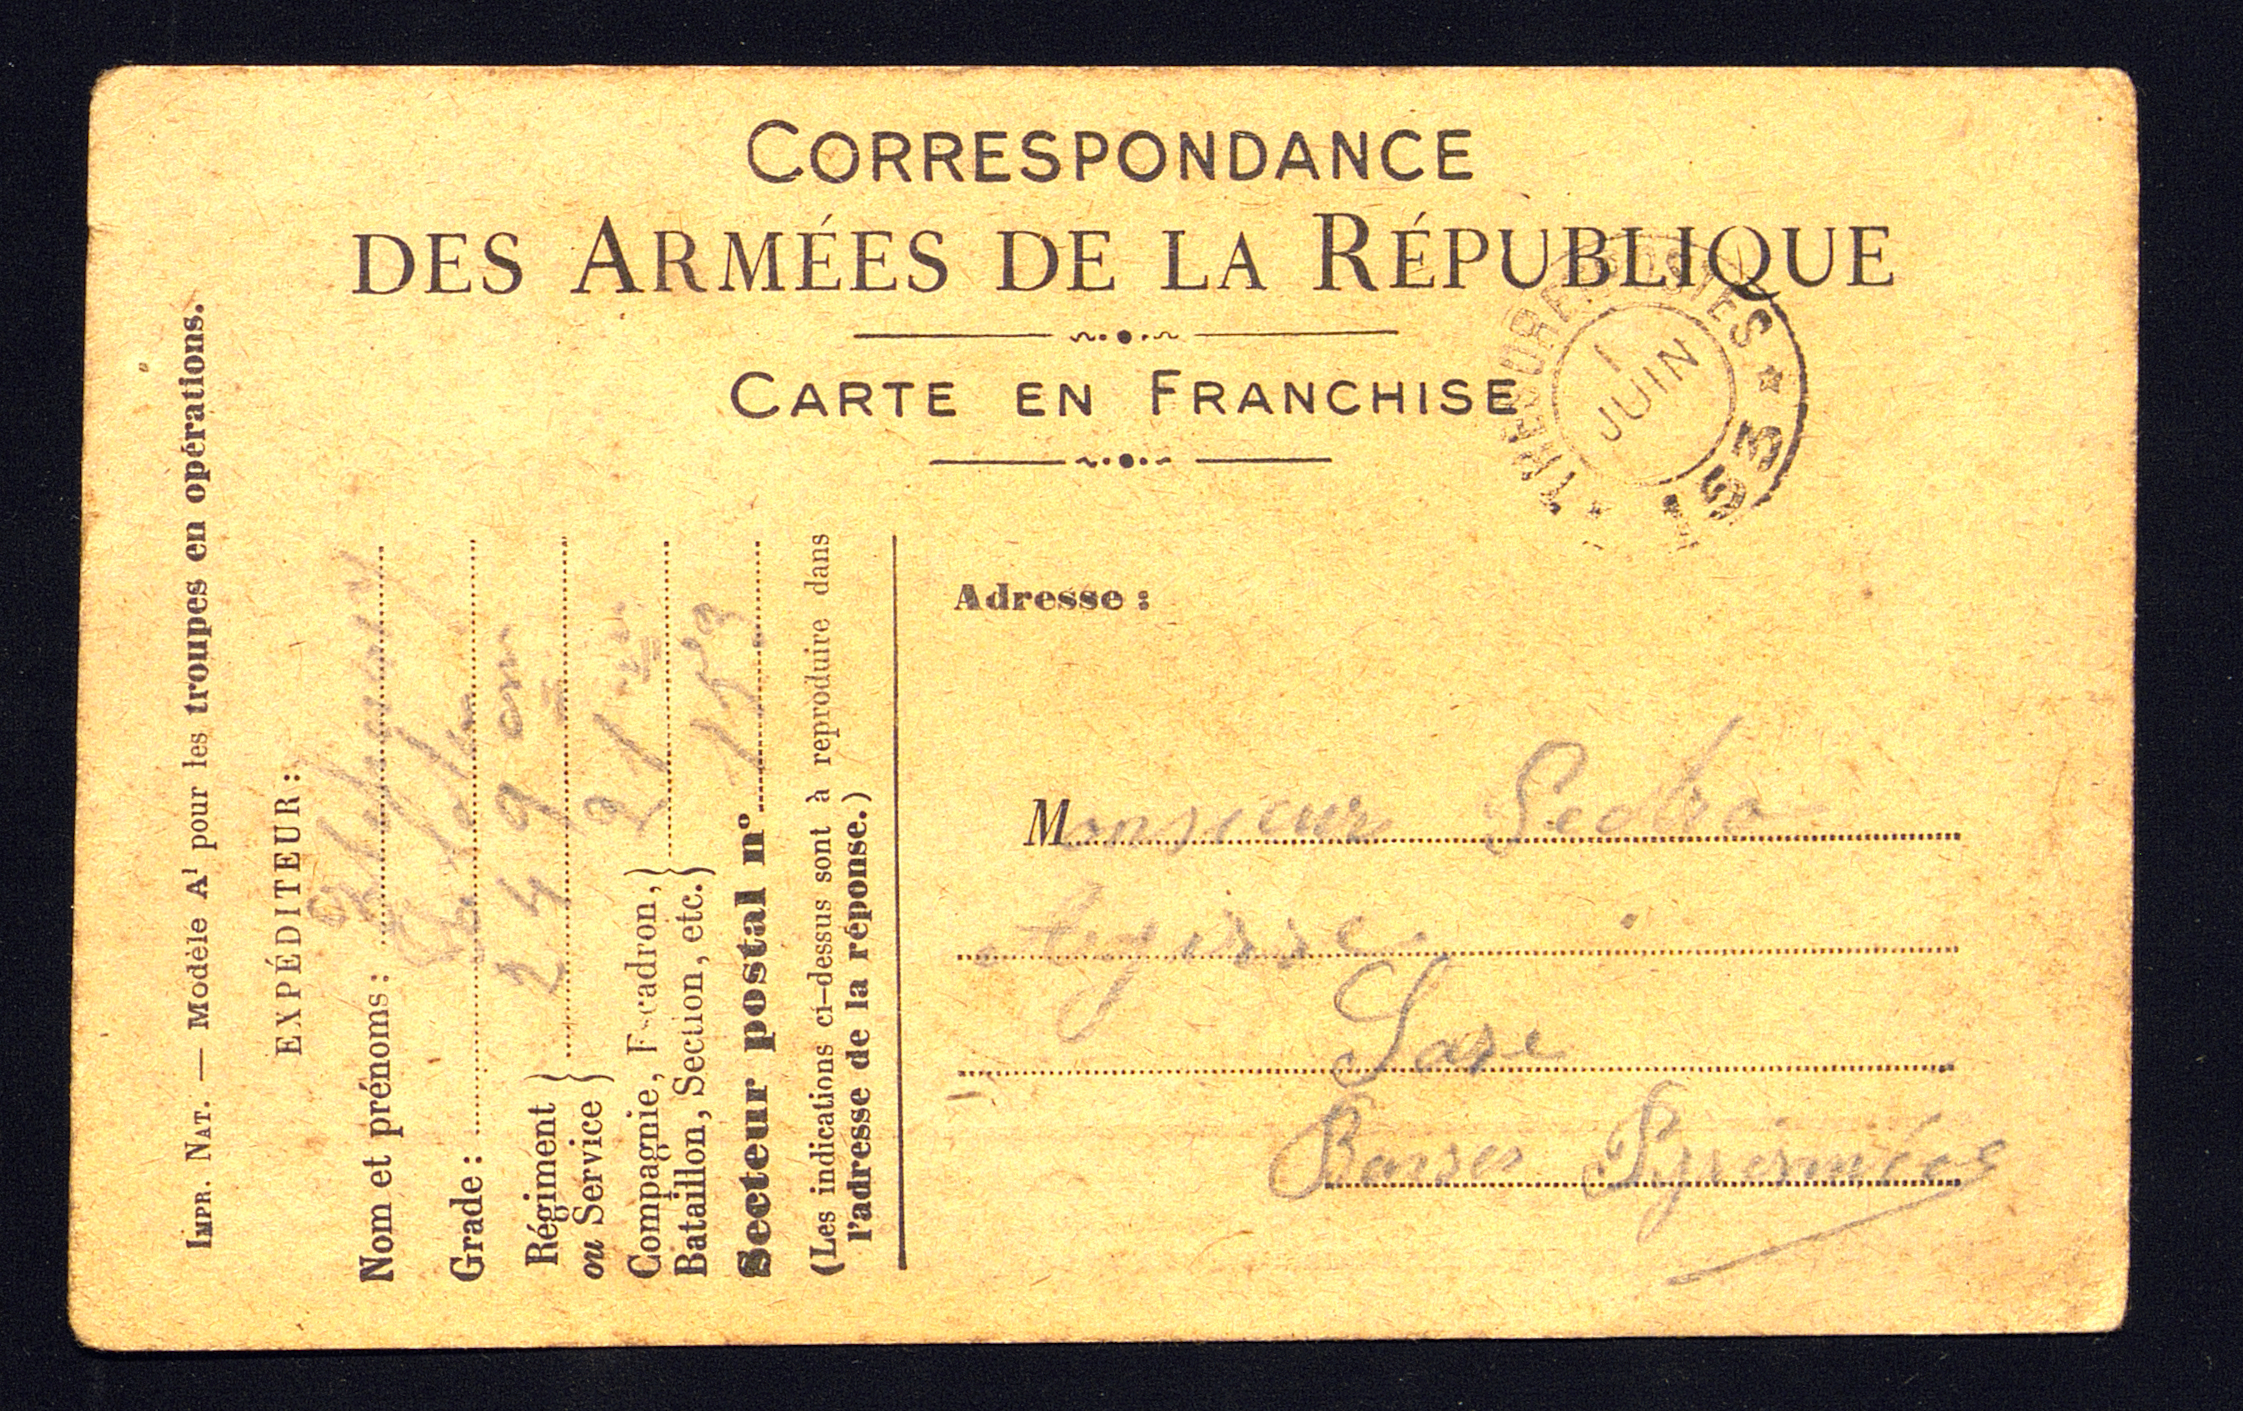 CORRESPONDANCE
DES ARMÉES DE LA RÉPUBLIQUE
CARTE EN FRANCHISE
TRESOR ET POSTES
1
JUIN
153
IMPR. NAT. — Modèle A¹ pour les troupes en opérations.
EXPÉDITEUR :
Nom et prénoms :
Grade :
Régiment
ou Service } 249
Compagnie, Escadron,
Bataillon, Section, etc. } 21
Secteur postal n° 153
(Les indications ci-dessus sont à reproduire dans
l'adresse de la réponse.)
Adresse :
Monsieur Pedro
Sare
Basses Pyrénées